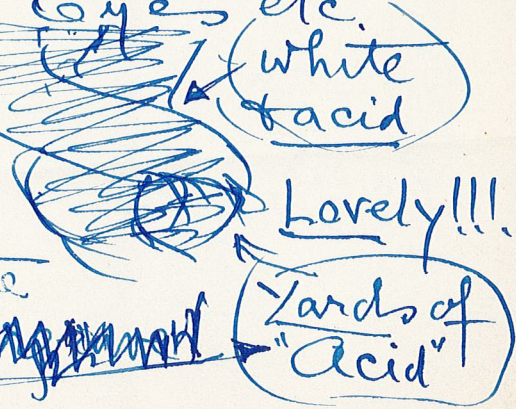 Eyes etc
white
& acid
Lovely!!!
Yards of
"Acid"